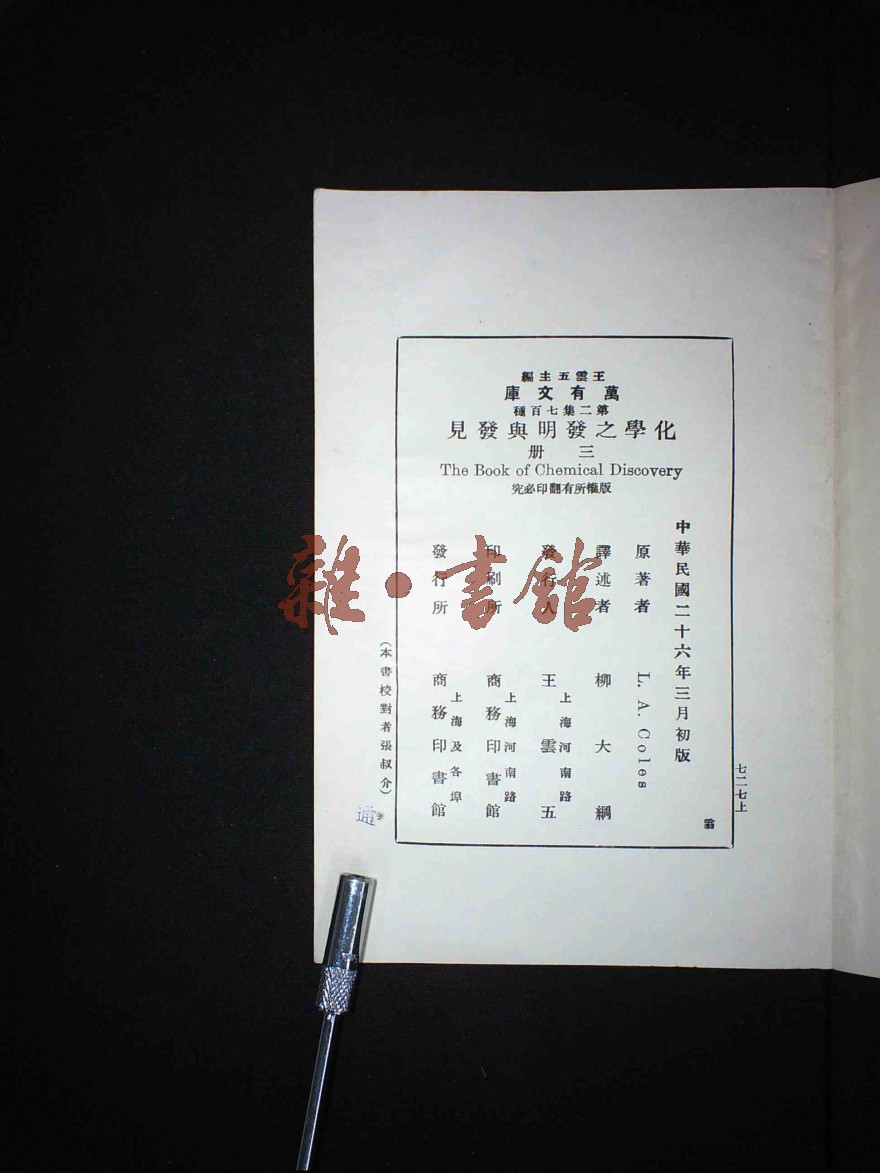 王雲五主編
萬有文庫
第二集七百種
化學之發明與發見
三册
The Book of Chemical Discovery
版權所有翻印必究
中華民國二十六年三月初版
原著者 L. A. Coles
譯述者 柳大綱
發行人 王雲五
上海河南路
印刷所 商務印書館
上海河南路
發行所 商務印書館
上海及各埠
(本書校對者張叔介)
七二七上
通
雜·書館